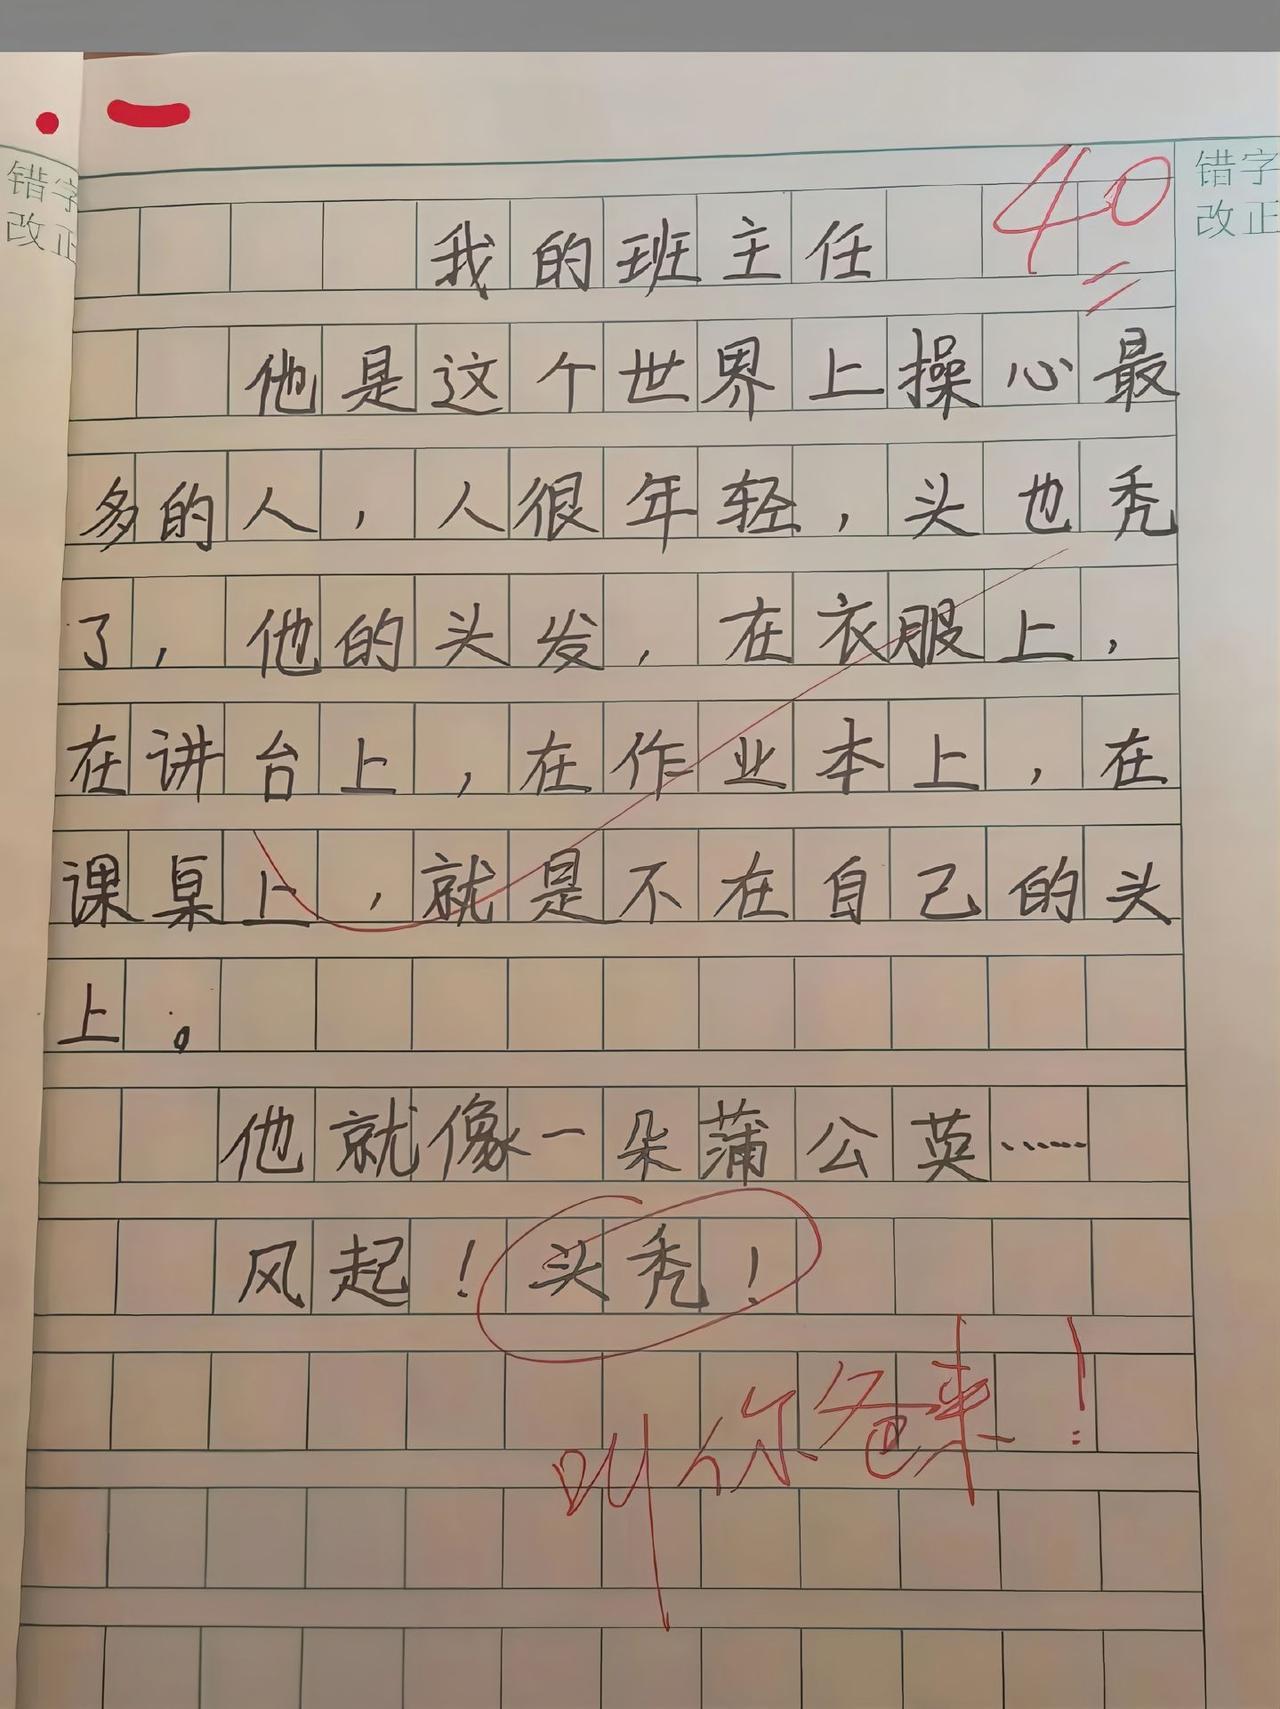 错字
改正
40
错字
改正
我的班主任
他是这个世界上操心最
多的人，人很年轻，头也秃
了，他的头发，在衣服上，
在讲台上，在作业本上，在
课桌上，就是不在自己的头
上。
他就像一朵蒲公英……
风起！头秃！
叫你爸来！